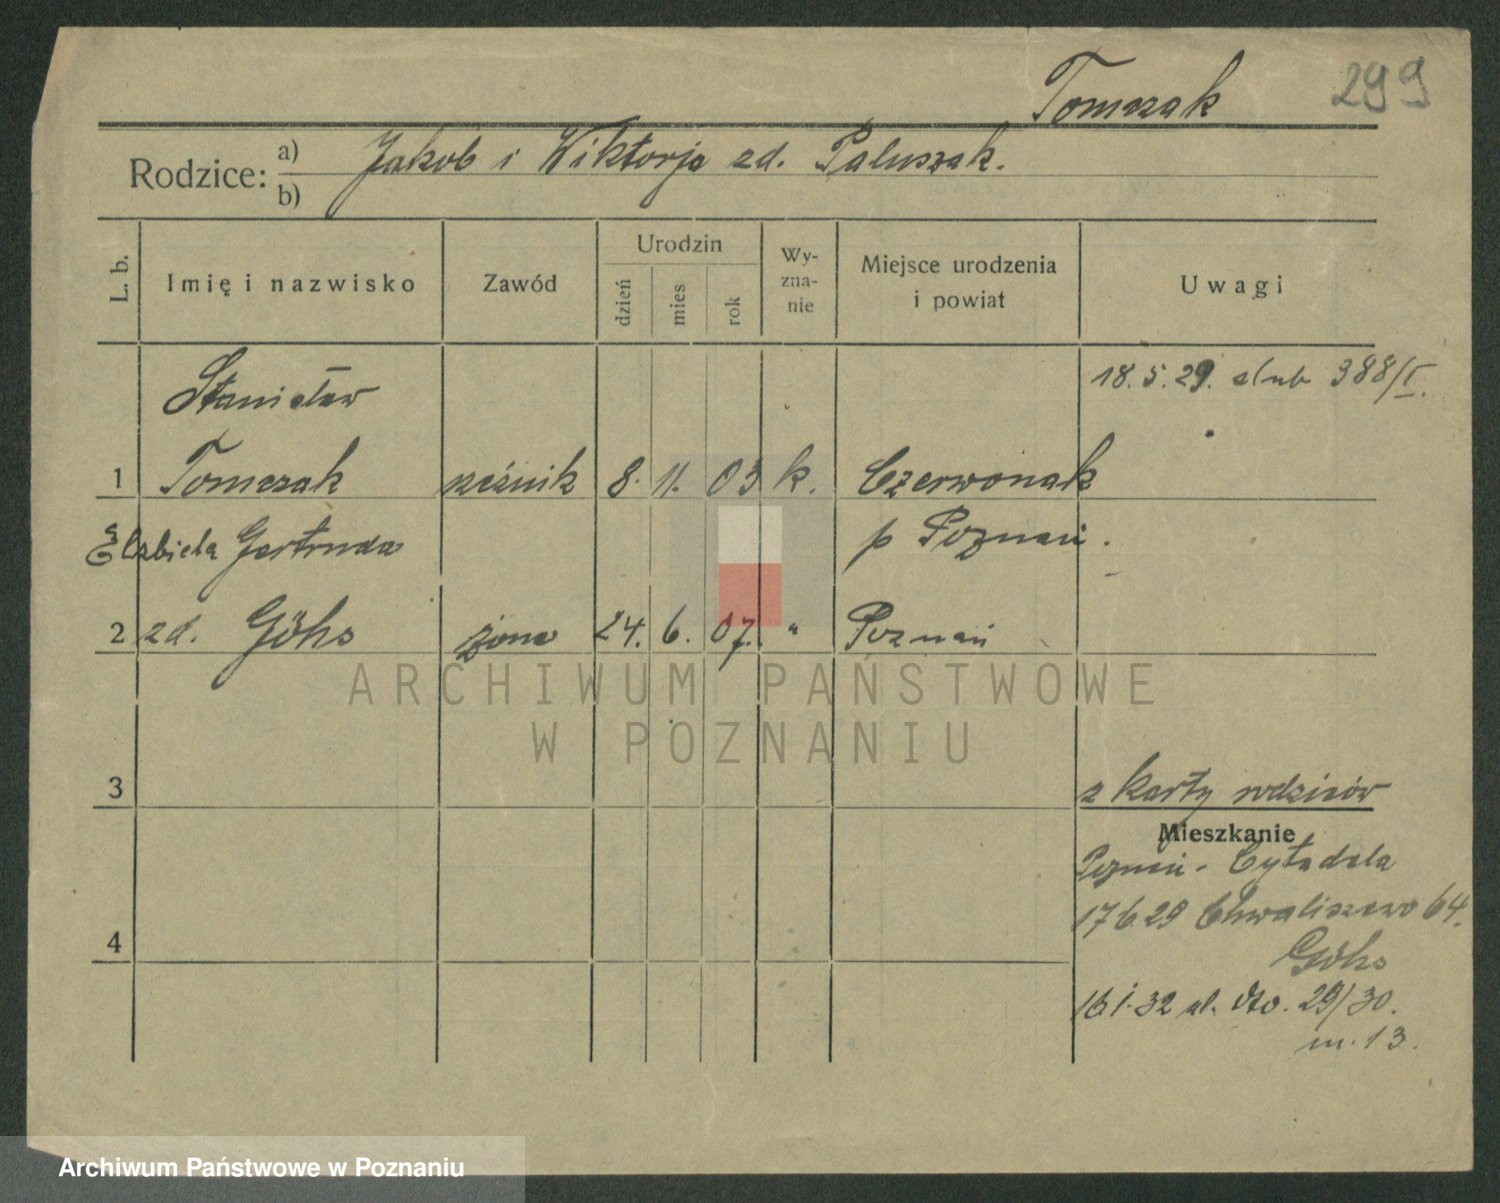 Tomczak 299
Rodzice: a) Jakób i Wiktorja zd. Paluszak.
b)
L. b. Imię i nazwisko Zawód Urodzin dzień mies rok Wy-zna-nie Miejsce urodzenia i powiat Uwagi
Stanisław 18. 5. 29. ślub 388/I.
1 Tomczak rzeźnik 8. 11. 03 k. Czerwonak
Elżbieta Gertruda p Poznań.
2 zd. Göhs żona 24. 6. 07. " Poznań
ARCHIWUM PAŃSTWOWE
W POZNANIU
3 z karty rodziców
Mieszkanie
Poznań - Cytadela
17 6 29 Chwaliszewo 64.
4 Göhs
1.32 ul. dto. 29/30.
m. 13.
Archiwum Państwowe w Poznaniu